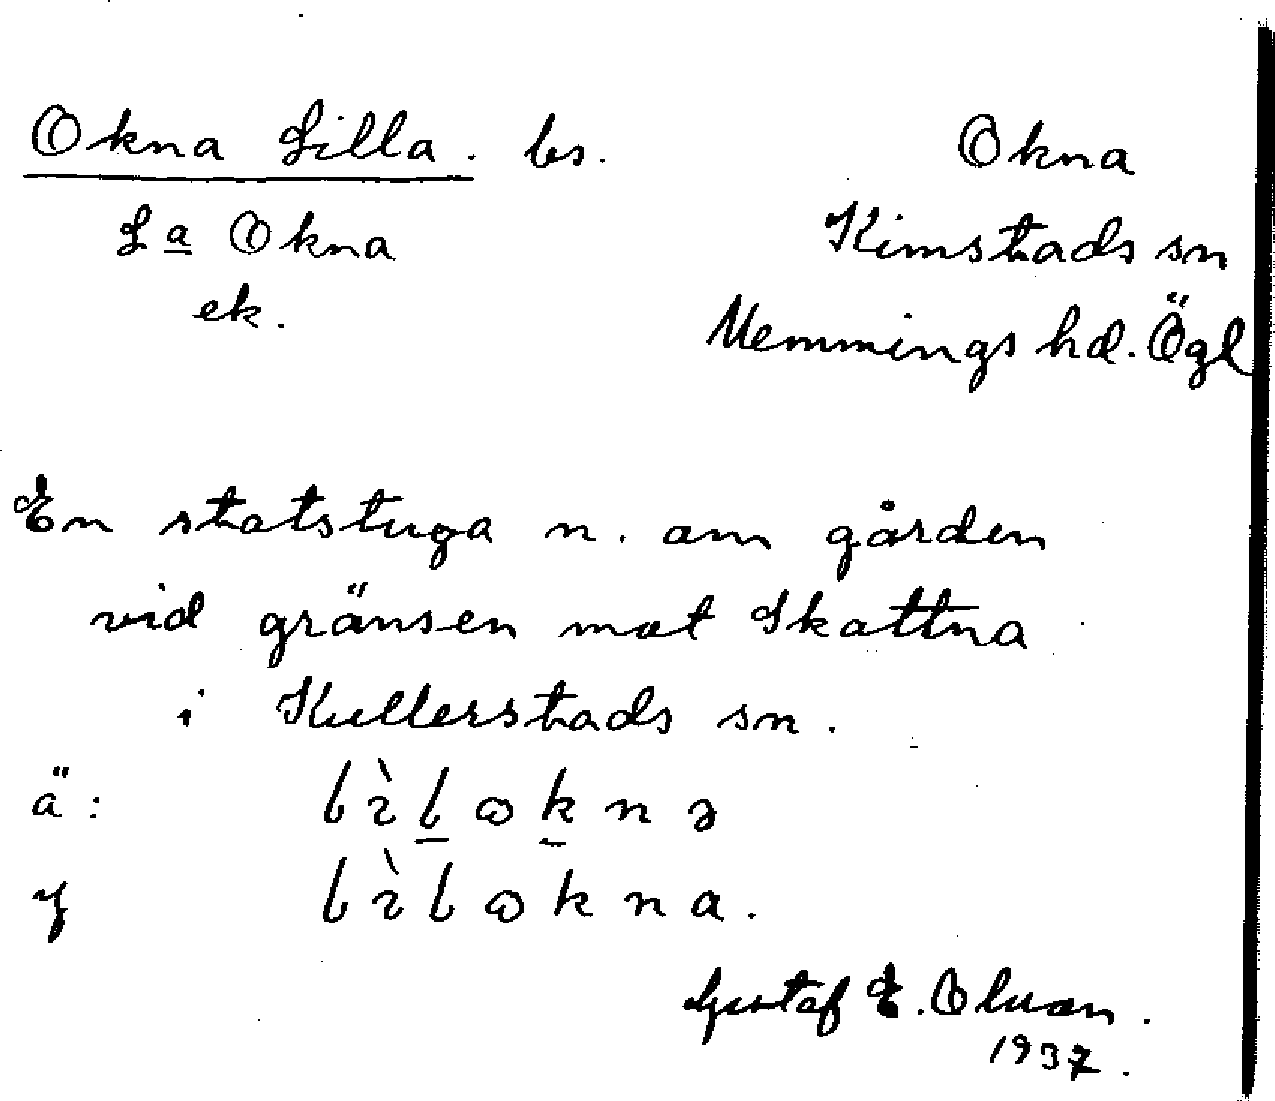 Okna Lilla. bs.
Okna
La Okna
Kimstads sn
ek.
Memmings hd. Ögl
En statstuga n. om gården
vid gränsen mot Skattna
i Kullerstads sn.
ä:
y
Gustaf E. Olson.
1937.